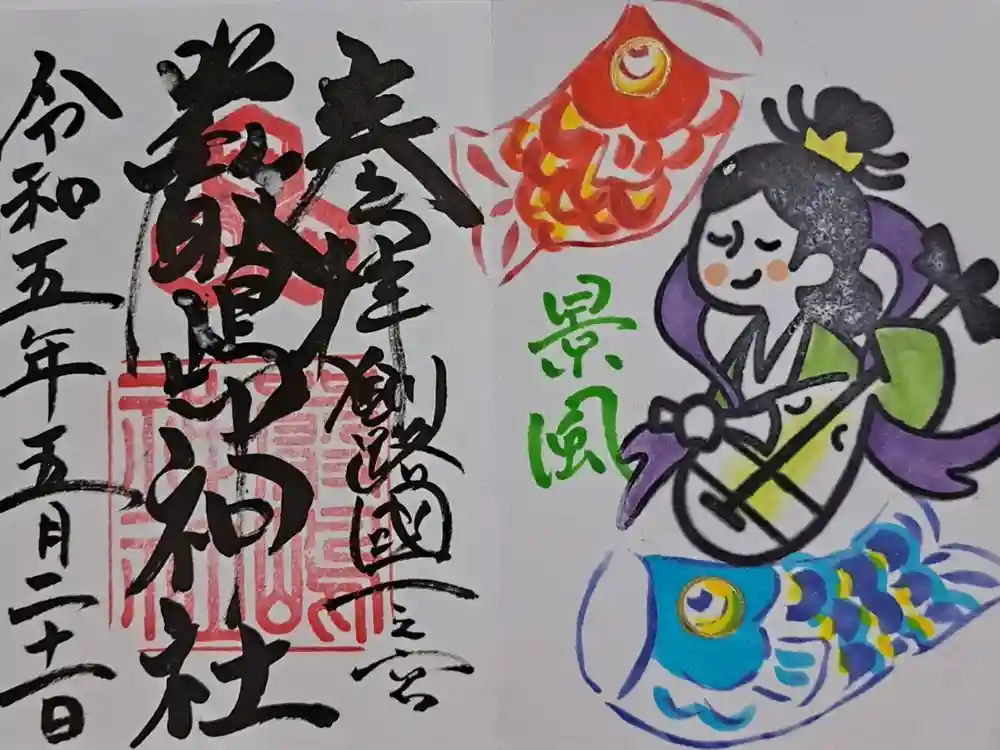 奉拝 釧路國一之宮
嚴島神社
令和五年五月二十一日
景風